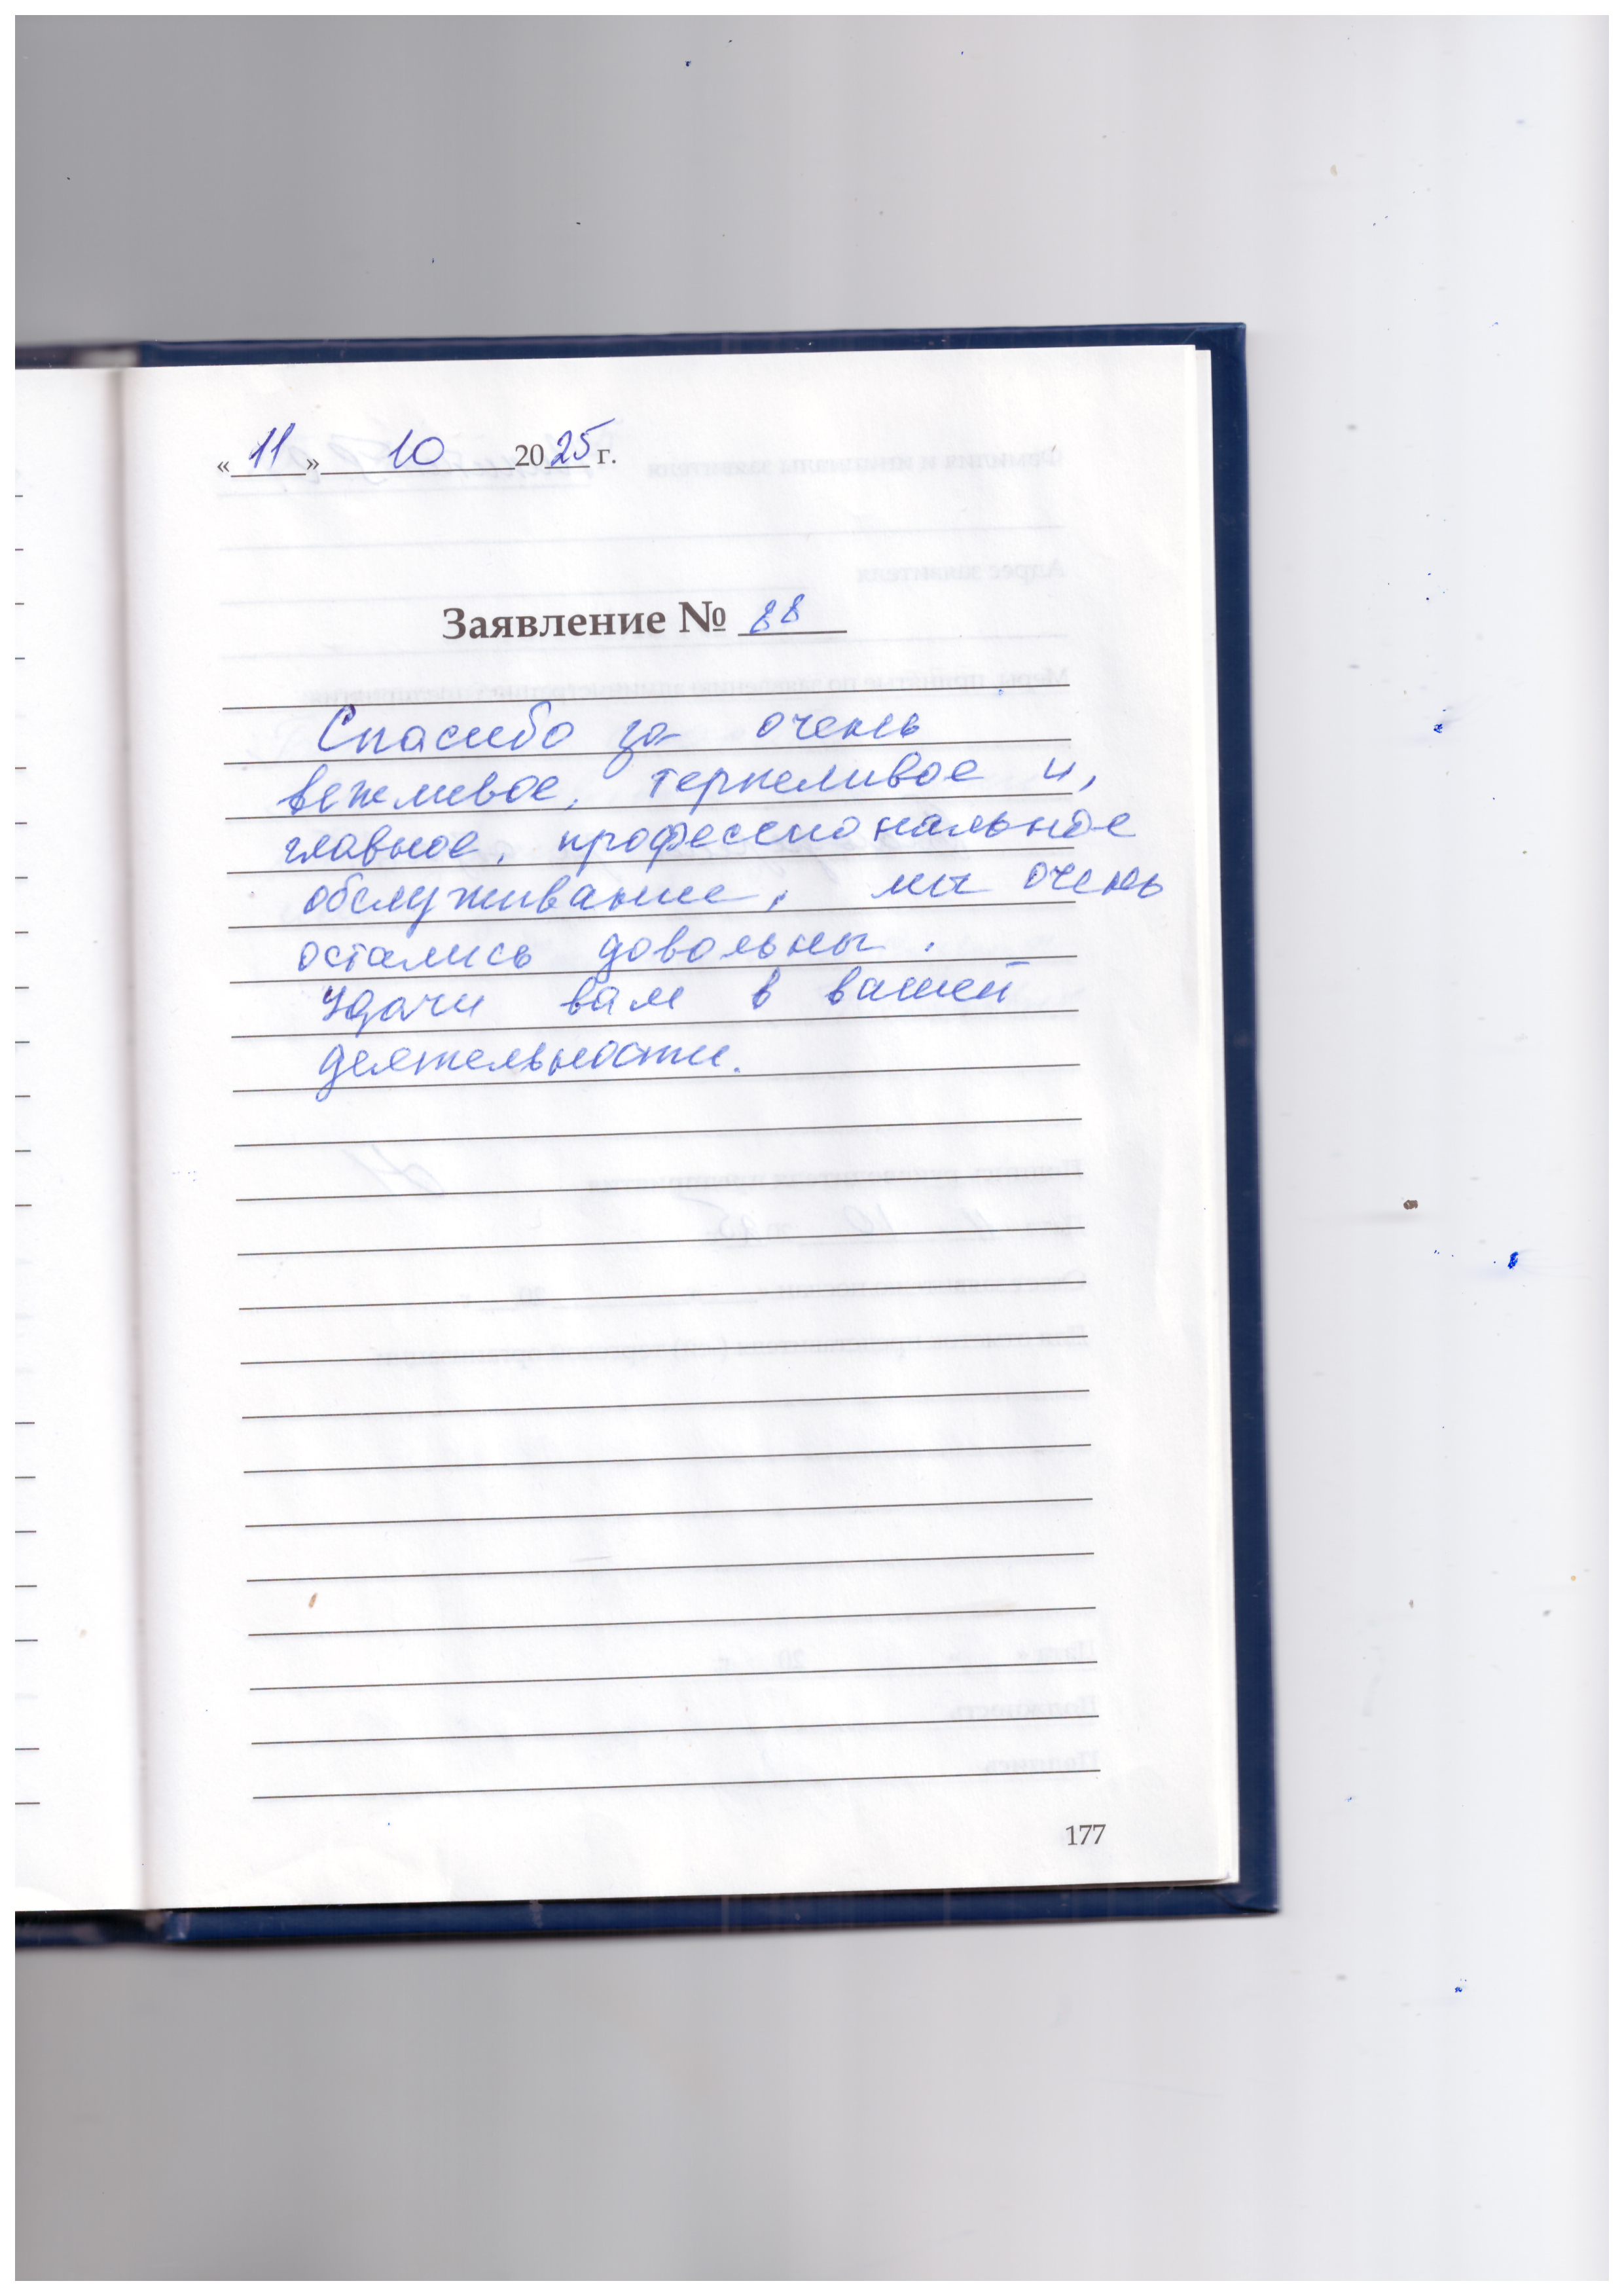 «11» 10 2025 г.
Заявление № 88
Спасибо за очень
вежливое, терпеливое и,
главное, профессиональное
обслуживание, мы очень
остались довольны.
Удачи вам в вашей
деятельности.
177